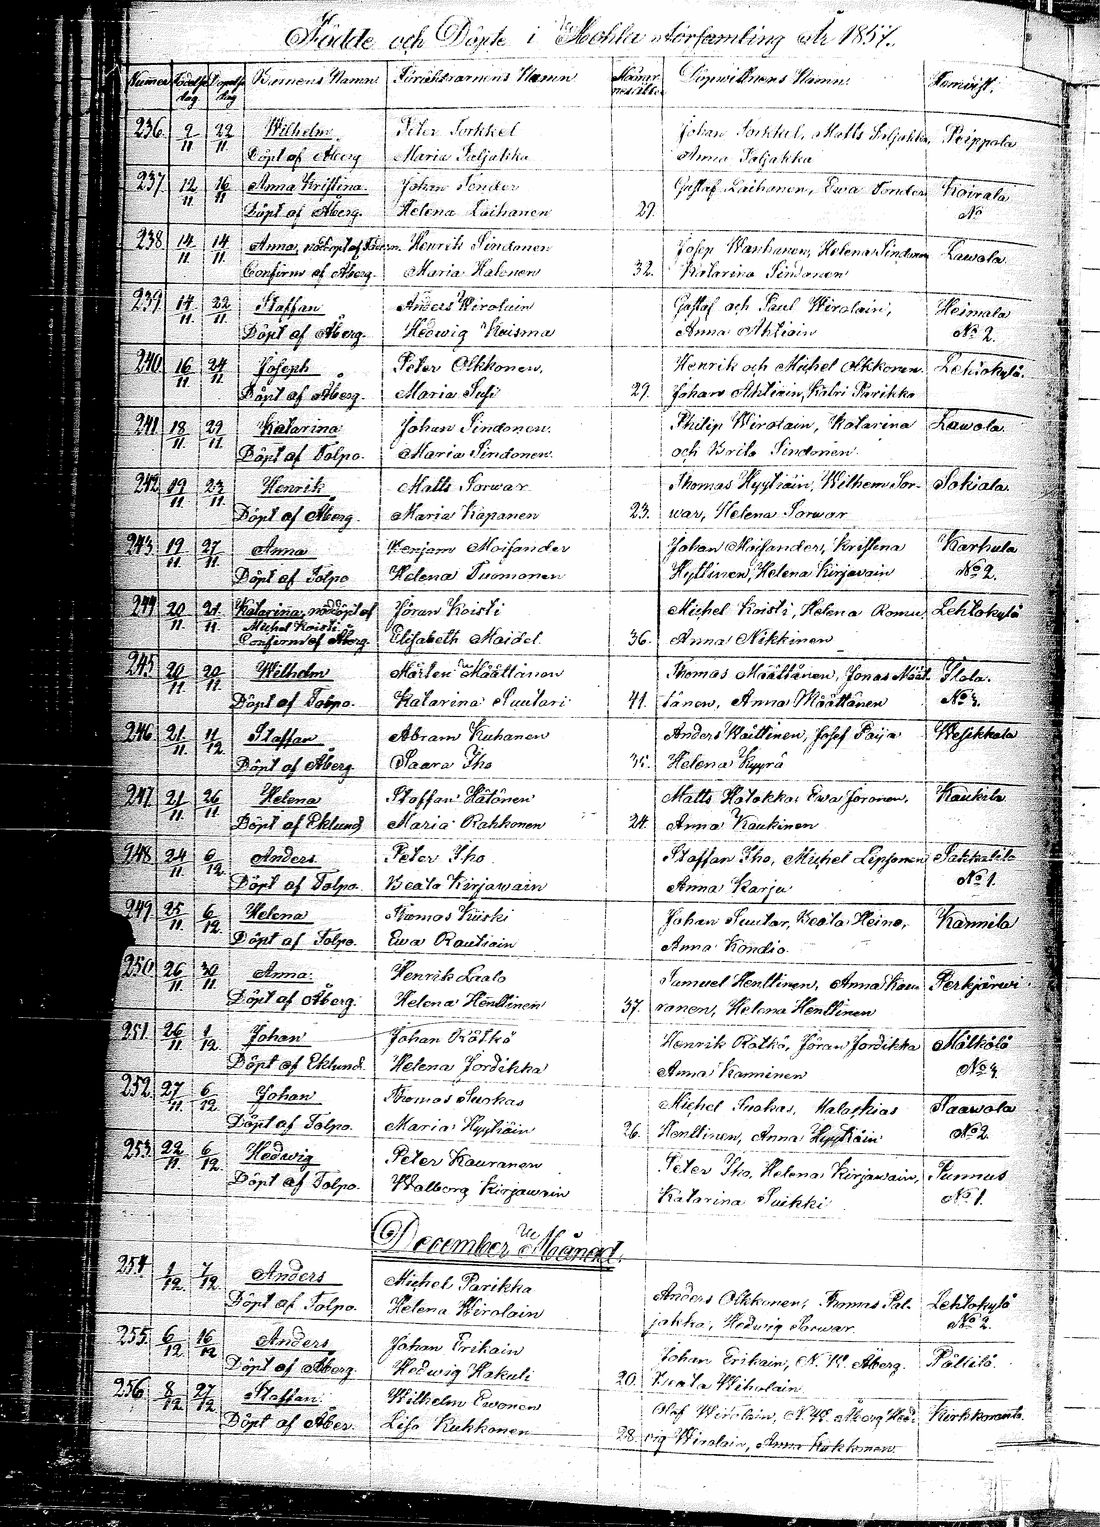 Födde och Döpte i Mohla Församling År 1857.
Numer Födelse dag Döpelse dag Barnens Namn Föräldrarnens Namn Mödrarnes ålder Dopwittnens Namn Hemvist.
236. 2/11 22/11 Wilhelm Peter Torkkel Johan Torkkel, Matts Paljakka, Peippola
Döpt af Åberg Maria Paljakka Anna Paljakka
237. 12/11 16/11 Anna Kristina. Johan Tender Gustaf Laihanen, Ewa Tender Koirala
Döpt af Åberg. Helena Laihanen 29. No
238. 14/11 14/11 Anna, nöddöpt af Henrik Sindonen Josep Wanhanen, Helena Sindonen Lawola
Confirm af Åberg. Maria Halonen 32. Katarina Sindonen
239. 14/11 22/11 Staffan Anders Wirolain Gustaf och Paul Wirolain, Heimala
Döpt af Åberg. Hedwig Kaisma Anna Ahtiain No 2.
240. 16/11 24/11 Joseph Peter Olkkonen. Henrik och Michel Olkkonen Lehtokylä.
Döpt af Åberg. Maria Susi 29. Johan Ahtiain, Katri Parikka
241. 18/11 29/11 Katarina Johan Sindonen. Philip Wirolain, Katarina Lawola
Döpt af Tolpo. Maria Sindonen. och Brita Sindonen.
242. 19/11 23/11 Henrik Matts Sorwar Thomas Hyytiäin, Wilhem Sor- Sokiala.
Döpt af Åberg. Maria Kapanen 23. war, Helena Sorwar
243. 19/11 27/11 Anna Benjam Moisander Johan Moisander, Kristina Karhula
Döpt af Tolpo Helena Tuomonen Hyttinen, Helena Kirjawain No 2.
244. 20/11 21/11 Katarina, nöddöpt af Jöran Koisti Michel Koisti, Helena Romu, Lehtokylä
Michel Koisti
Confirm af Åberg. Elisabeth Maidel 36. Anna Nikkinen
245. 20/11 20/11 Wilhelm Mårten Määttänen Thomas Määttänen, Jonas Määt Ilola.
Döpt af Tolpo. Katarina Suutari 41. tänen, Anna Määttänen No 3.
246. 21/11 11/12 Staffan Abram Kuhanen Anders Waittinen, Josef Paija Wesikkala
Döpt af Åberg Saara Iho 35. Helena Kyyrä
247. 21/11 26/11 Helena Staffan Hätönen Matts Hatakka, Ewa Joronen, Kaukila
Döpt af Eklund Maria Rahkonen 24. Anna Kaukinen
248. 24/11 6/12 Anders. Peter Iho. Staffan Iho, Michel Lipsonen Pakkalilä
Döpt af Tolpo. Beata Kirjawain Anna Karju No 1.
249. 25/11 6/12 Helena Thomas Kiiski Johan Suutar, Beata Heino, Kannila
Döpt af Tolpo. Ewa Rautiain Anna Kondio.
250. 26/11 30/11 Anna. Henrik Laalo Samuel Henttinen, Anna Kau Perkjärwi
Döpt af Åberg. Helena Henttinen 37. ranen, Helena Henttinen
251. 26/11 1/12 Johan Johan Rätkö Henrik Rätkö, Jöran Jordikka Mälkölä
Döpt af Eklund. Helena Jordikka Anna Kanninen No 3.
252. 27/11 6/12 Johan Thomas Suokas Michel Suokas, Malachias Saawola
Döpt af Tolpo. Maria Hyytiäin 26. Henttinen, Anna Hyytiäin No 2.
253. 22/11 6/12 Hedwig Peter Kauranen Peter Iho, Helena Kirjawain, Punnus
Döpt af Tolpo. Walborg Kirjawain Katarina Suikki No 1.
December Månad.
254. 1/12 7/12 Anders Michel Parikka Anders Olkkonen, Thomas Pal- Lehtokylä
Döpt af Tolpo. Helena Wirolain jakka, Hedwig Sorwar. No 2.
255. 6/12 16/12 Anders Johan Erikäin Johan Erikäin, N. W. Åberg. Pällilä.
Döpt af Åberg Hedwig Hakuli 20. Beata Wiholain
256. 8/12 27/12 Staffan. Wilhelm Ewonen Olof Wirolain, N. W. Åberg Hed- Kirkkoranta
Döpt af Åber. Lisa Kukkonen 28. wig Wirolain, Anna Kukkonen